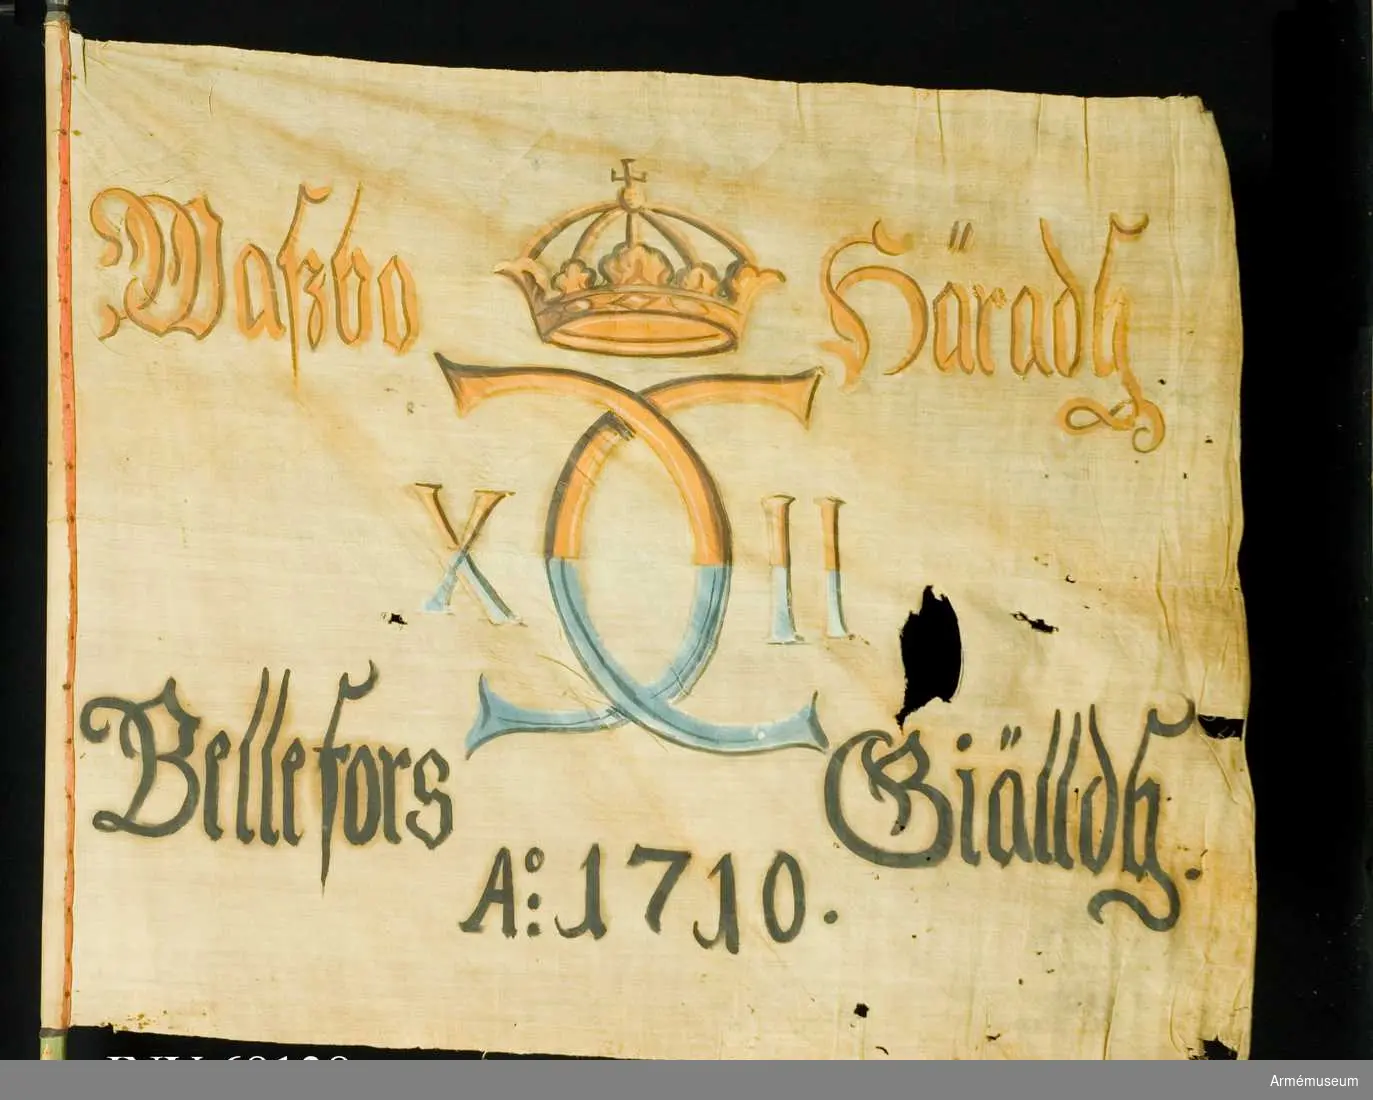 Waszbo Häradh
X CC II
Bellefors Giälldh.
Ao: 1710.
Armémuseum